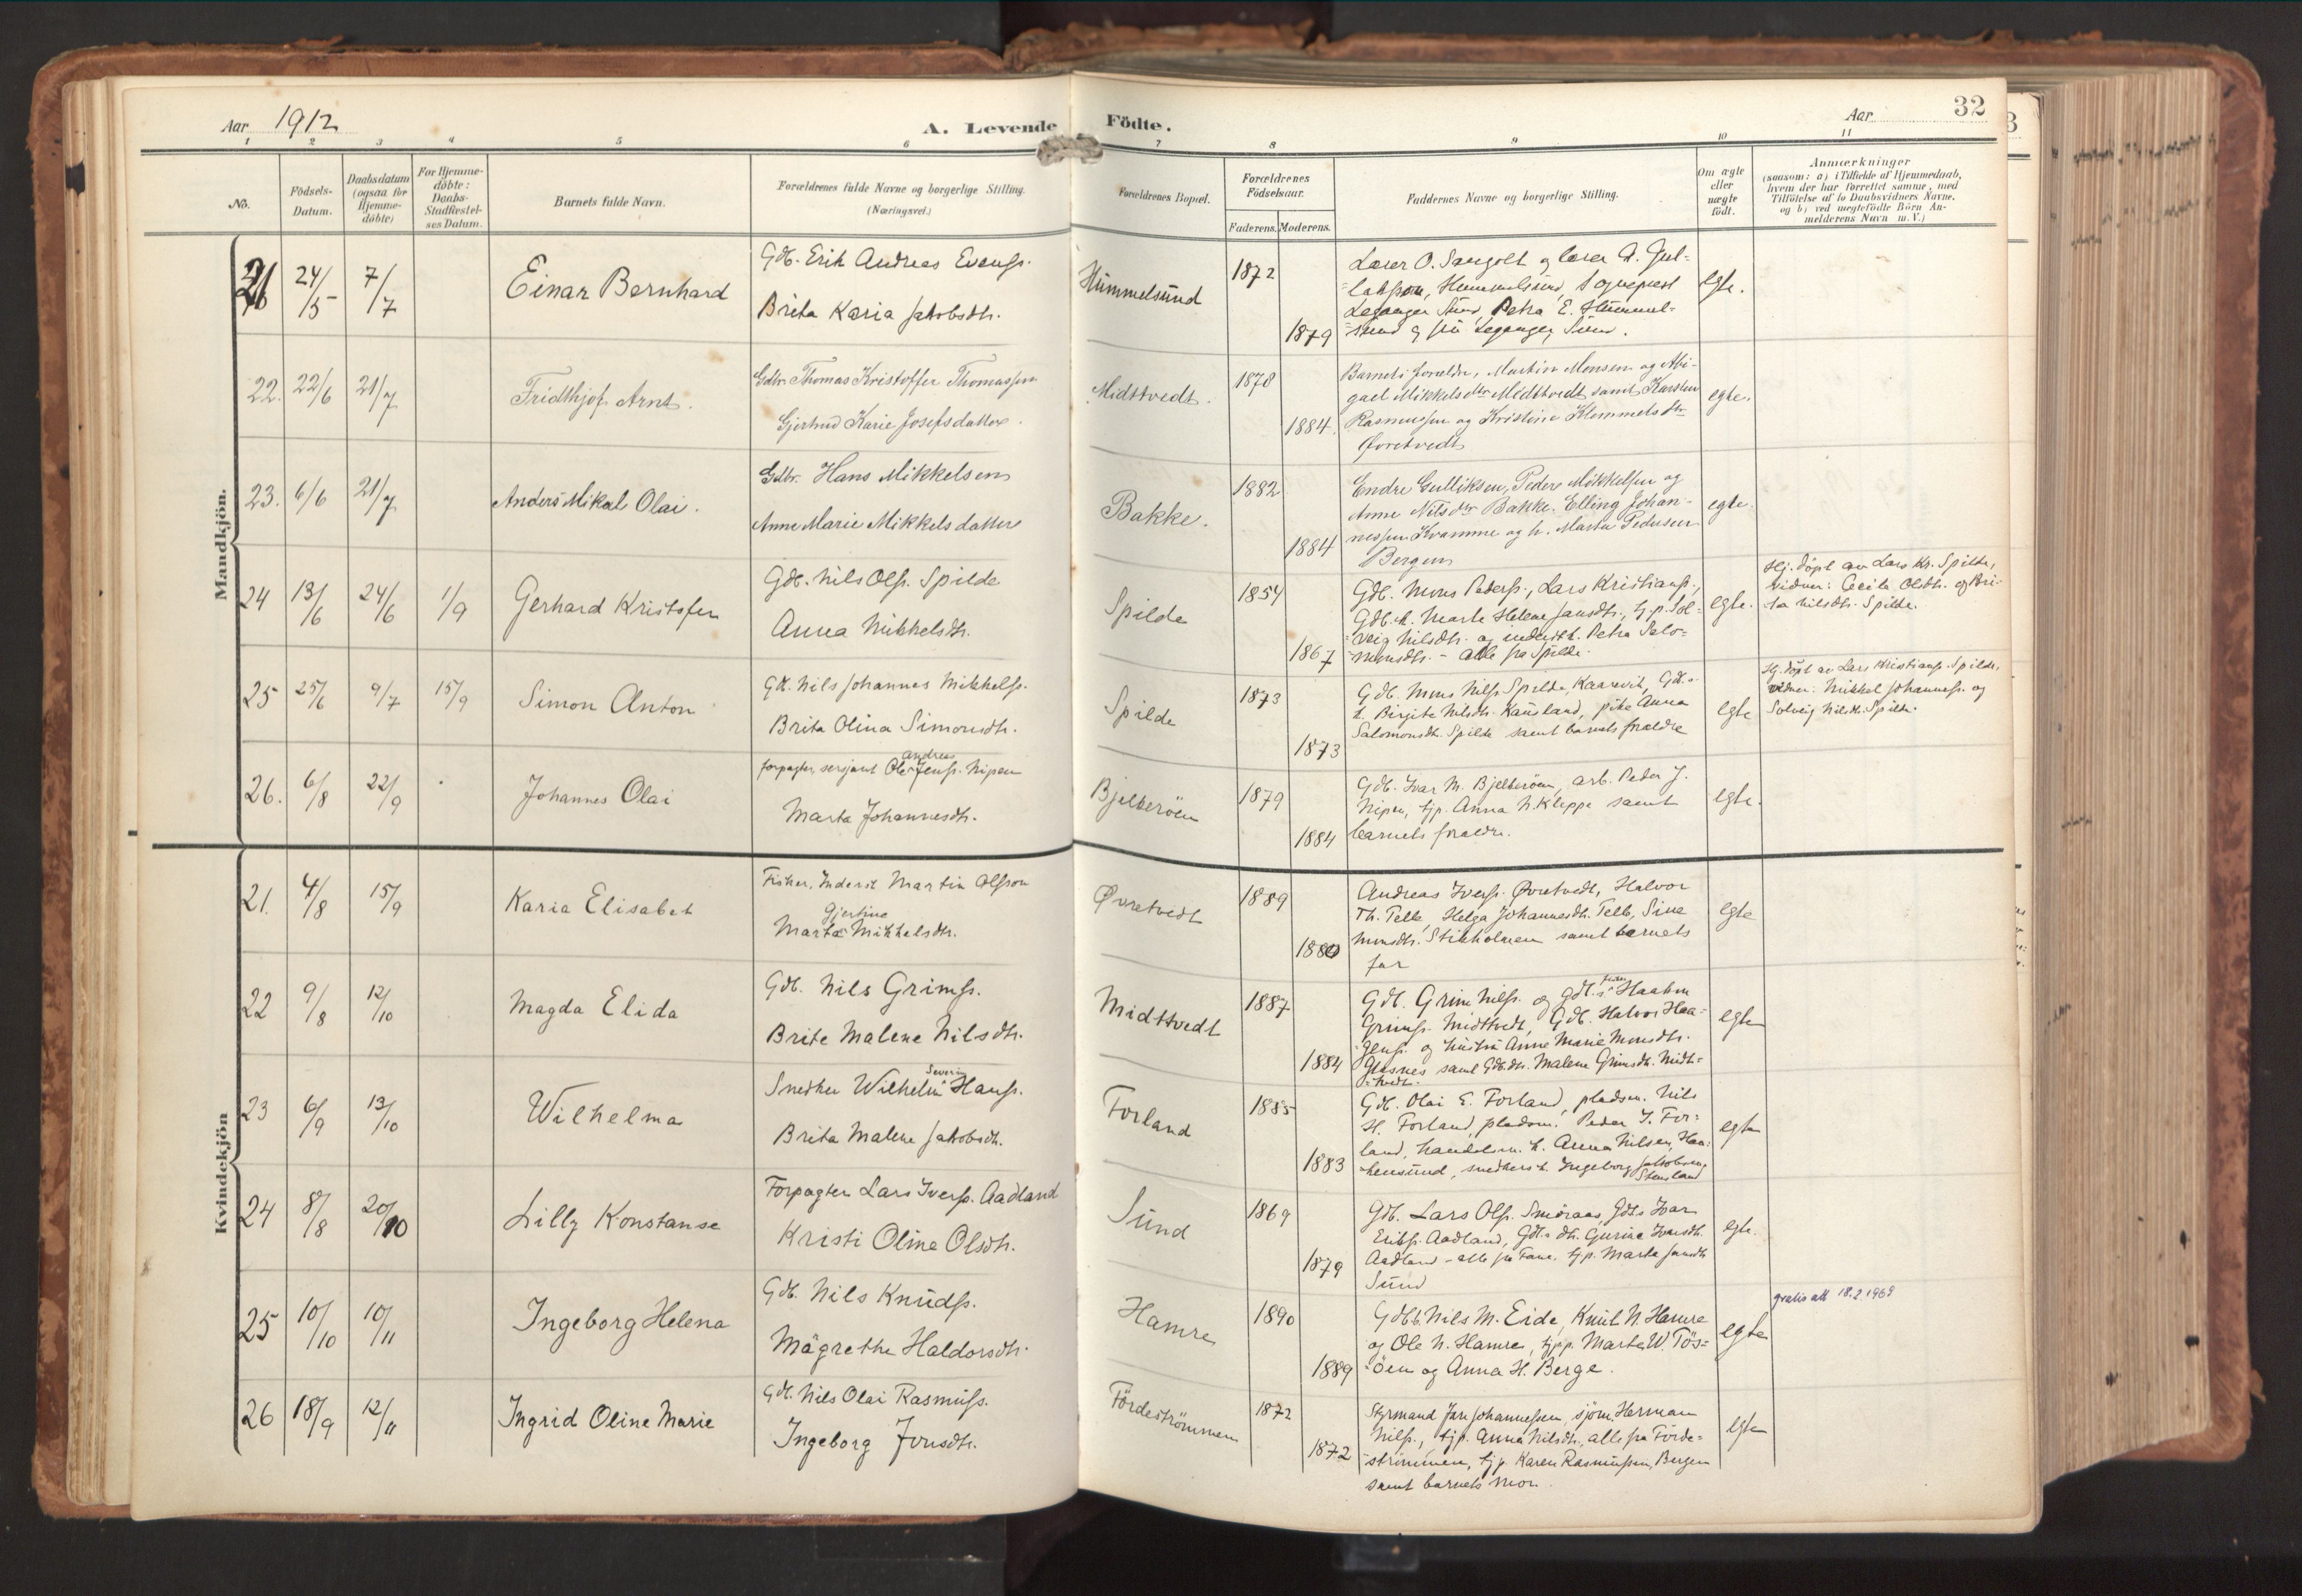 Aar 1912
A. Levende
Födte.
Aar
32
1 2 3 4 5 6 7 8 9 10 11
No.
Födsels-
Datum.
Daabsdatum
(ogsaa for
Hjemme-
döbte)
For Hjemme-
döbte:
Daabs-
Stadfestel-
ses Datum.
Barnets fulde Navn.
Forældrenes fulde Navne og borgerlige Stilling.
(Næringsvei.)
Forældrenes Bopæl.
Forældrenes
Födselsaar.
Faderens. Moderens.
Faddernes Navne og borgerlige Stilling.
Om ægte
eller
uægte
födt.
Anmærkninger
(saasom: a) i Tilfælde af Hjemmedaab,
hvem der har forrettet samme, med
Tilföielse af to Daabsvidners Navne,
og b) ved uægtefödte Börn An-
melderens Navn m. V.)
Mandkjön.
21 24/5 7/7
Einar Bernhard
Gdb. Erik Andreas Evensf.
Brita Karia Jakobsdtr.
Hummelsund
1872
1879
Petra E. Hummel-
egte.
22. 22/6 21/7
Fridthjof Arnt.
Gdbr. Thomas Kristoffer Thomassen
Gjertrud Karie Josefsdatter.
Midttvedt.
1878
1884.
Barnets forældre, Martin Monsen og Abi-
gael Mikkelsdtr Midttvedt samt Karsten
Rasmussen og Kristine Klemmetsdtr
Övretvedt
egte.
23. 6/6 21/7
Anders Mikal Olai.
Gdbr. Hans Mikkelsen
Anne Marie Mikkelsdatter
Bakke.
1882
1884
Endre Gulliksen, Peder Mikkelsen og
Anne Nilsdtr Bakke. Elling Johan-
nessen Kvamme og h. Marta Pedersen
Bergen
egte.
24 13/6 24/6 1/9
Gerhard Kristofer
Gdb. Nils Olsf. Spilde
Anna Mikkelsdtr.
Spilde
1854
1867
Gdb. Mons Pedersf., Lars Kristiansf.,
Gdb. h. Marta Helene Jansdtr., tj.p. Sol-
veig Nilsdtr. og inderst h. Petra Salo-
monsdtr. - alle fra Spilde.
egte.
Hj. döpt av Lars Kr. Spilde,
vidner: Cecilie Olsdtr. og Bri-
ta Nilsdtr. Spilde.
25 25/6 9/7 15/9
Simon Anton
Gdb. Nils Johannes Mikkelsf.
Brita Olina Simonsdtr.
Spilde
1873
1873
Gdb. Mons Nilsf. Spilde, Kaarevik, Gdb.s
h. Birgite Nilsdtr. Kausland, pike Anna
Salomonsdtr. Spilde samt barnets forældre
egte
Hj. döpt av Lars Kristiansf. Spilde,
vidner: Mikkel Johannesf. og
Solveig Nilsdtr. Spilde.
26. 6/8 22/9
Johannes Olai
forpagter, sersjant Ole Andreas Jensf. Nipen
Marta Johannesdtr.
Bjelkeröen
1879
1884
Gdb. Ivar M. Bjelkeröen, arb. Peder J.
Nipen, tjp. Anna N. Kleppe samt
barnets foræld.
egte.
Kvindekjön
21. 4/8 15/9
Karia Elisabet
Fisker, Inderst Martin Olsson
Marta Gjertine Mikkelsdtr.
Øvretvedt
1889
1880
Andreas Iversf. Øvretvedt, Halvor
Th. Telle, Helga Johannesdtr. Telle, Sine
Monsdtr. Stikholmen samt barnets
far
egte
22 9/8 12/10
Magda Elida
Gdb. Nils Grimsf.
Brite Malene Nilsdtr.
Midttvedt
1887
1884
Gdb. Grim Nilsf. og Gdb.s Haakon
Grimsf. Midttvedt, Gdb. Halvor Haa-
gensf. og hustru Anne Marie Monsdtr.
Glesnes samt Gdb.dtr. Malene Grimsdtr. Midt-
tvedt.
egte
23 6/9 13/10
Wilhelma
Snedker Wilhelm Severin Hansf.
Brita Malene Jakobsdtr.
Forland
1885
1883
Gdb. Olai E. Forland, pladsm. Nils
H. Forland, pladsm. Peder J. For-
land, handelsm. h. Anna Nilsen, Haa-
kensund, snedkers h. Ingeborg Jakobsen,
Stensland
egte
24 8/8 20/10
Lilly Konstanse
Forpagter Lars Iversf. Aadland
Kristi Oline Olsdtr.
Sund
1869
1879
Gdb. Lars Olsf. Smöraas, Gdb.s Ivar
Eriksf. Aadland, Gdb.s dtr. Gurine Ivarsdtr.
Aadland - alle fra Fane. tjp. Marta Jansdtr
Sund
egte.
25 10/10 10/11
Ingeborg Helena
Gdb. Nils Knudsf.
Magrethe Haldorsdtr.
Hamre
1890
1889
Gdbb. Nils M. Eide, Knut N. Hamre
og Ole N. Hamre, tjpp. Marta W. Tös-
öen og Anna H. Berge.
egte
gratis att 18.2.1969
26 18/9 12/11
Ingrid Oline Marie
Gdb. Nils Olai Rasmusf.
Ingeborg Jonsdtr.
Fördeströmmen
1872
1872
Styrmand Jan Johannessen, sjöm. Herman
Nilsf., tjp. Anna Nilsdtr., alle fra Förde-
strömmen, tjp. Karen Rasmussen, Bergen
samt barnets mor.
egte